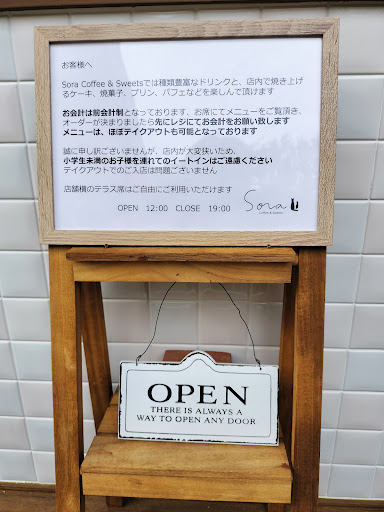 お客様へ
Sora Coffee & Sweetsでは種類豊富なドリンクと、店内で焼き上げ
るケーキ、焼菓子、プリン、パフェなどを楽しんで頂けます
お会計は前会計制となっております、お席にてメニューをご覧頂き、
オーダーが決まりましたら先にレジにてお会計をお願い致します
メニューは、ほぼテイクアウトも可能となっております
誠に申し訳ございませんが、店内が大変狭いため、
小学生未満のお子様を連れてのイートインはご遠慮ください
テイクアウトでのご入店は問題ございません
店舗横のテラス席はご自由にご利用いただけます
OPEN 12:00 CLOSE 19:00
Sora
Coffee & Sweets
OPEN
THERE IS ALWAYS A
WAY TO OPEN ANY DOOR